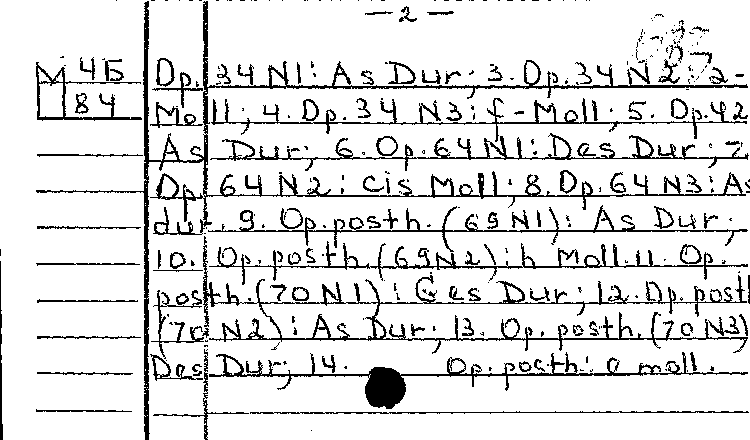 — 2 —
М 4Б Op. 34 N1: As Dur; 3. Op. 34 N2: a-
84 Moll; 4. Op. 34 N3: f-Moll; 5. Op. 42
As Dur; 6. Op. 64 N1: Des Dur; 7.
Op. 64 N2: cis Moll; 8. Op. 64 N3: As
dur. 9. Op. posth. (69 N1): As Dur;
10. Op. posth. (69 N2): h Moll. 11. Op.
posth. (70 N1): Ges Dur; 12. Op. post
(70 N2): As Dur; 13. Op. posth. (70 N3)
Des Dur; 14. Op. posth: e moll.